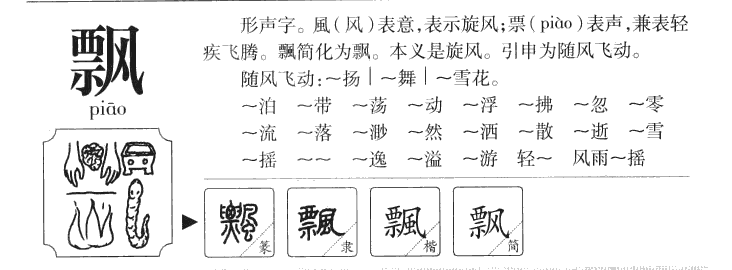 飘
piāo
形声字。風(风)表意,表示旋风;票(piào)表声,兼表轻
疾飞腾。飄简化为飘。本义是旋风。引申为随风飞动。
随风飞动:～扬|～舞|～雪花。
～泊 ～带 ～荡 ～动 ～浮 ～拂 ～忽 ～零
～流 ～落 ～渺 ～然 ～洒 ～散 ～逝 ～雪
～摇 ～～ ～逸 ～溢 ～游 轻～ 风雨～摇
飄 篆
飄 隶
飄 楷
飘 简